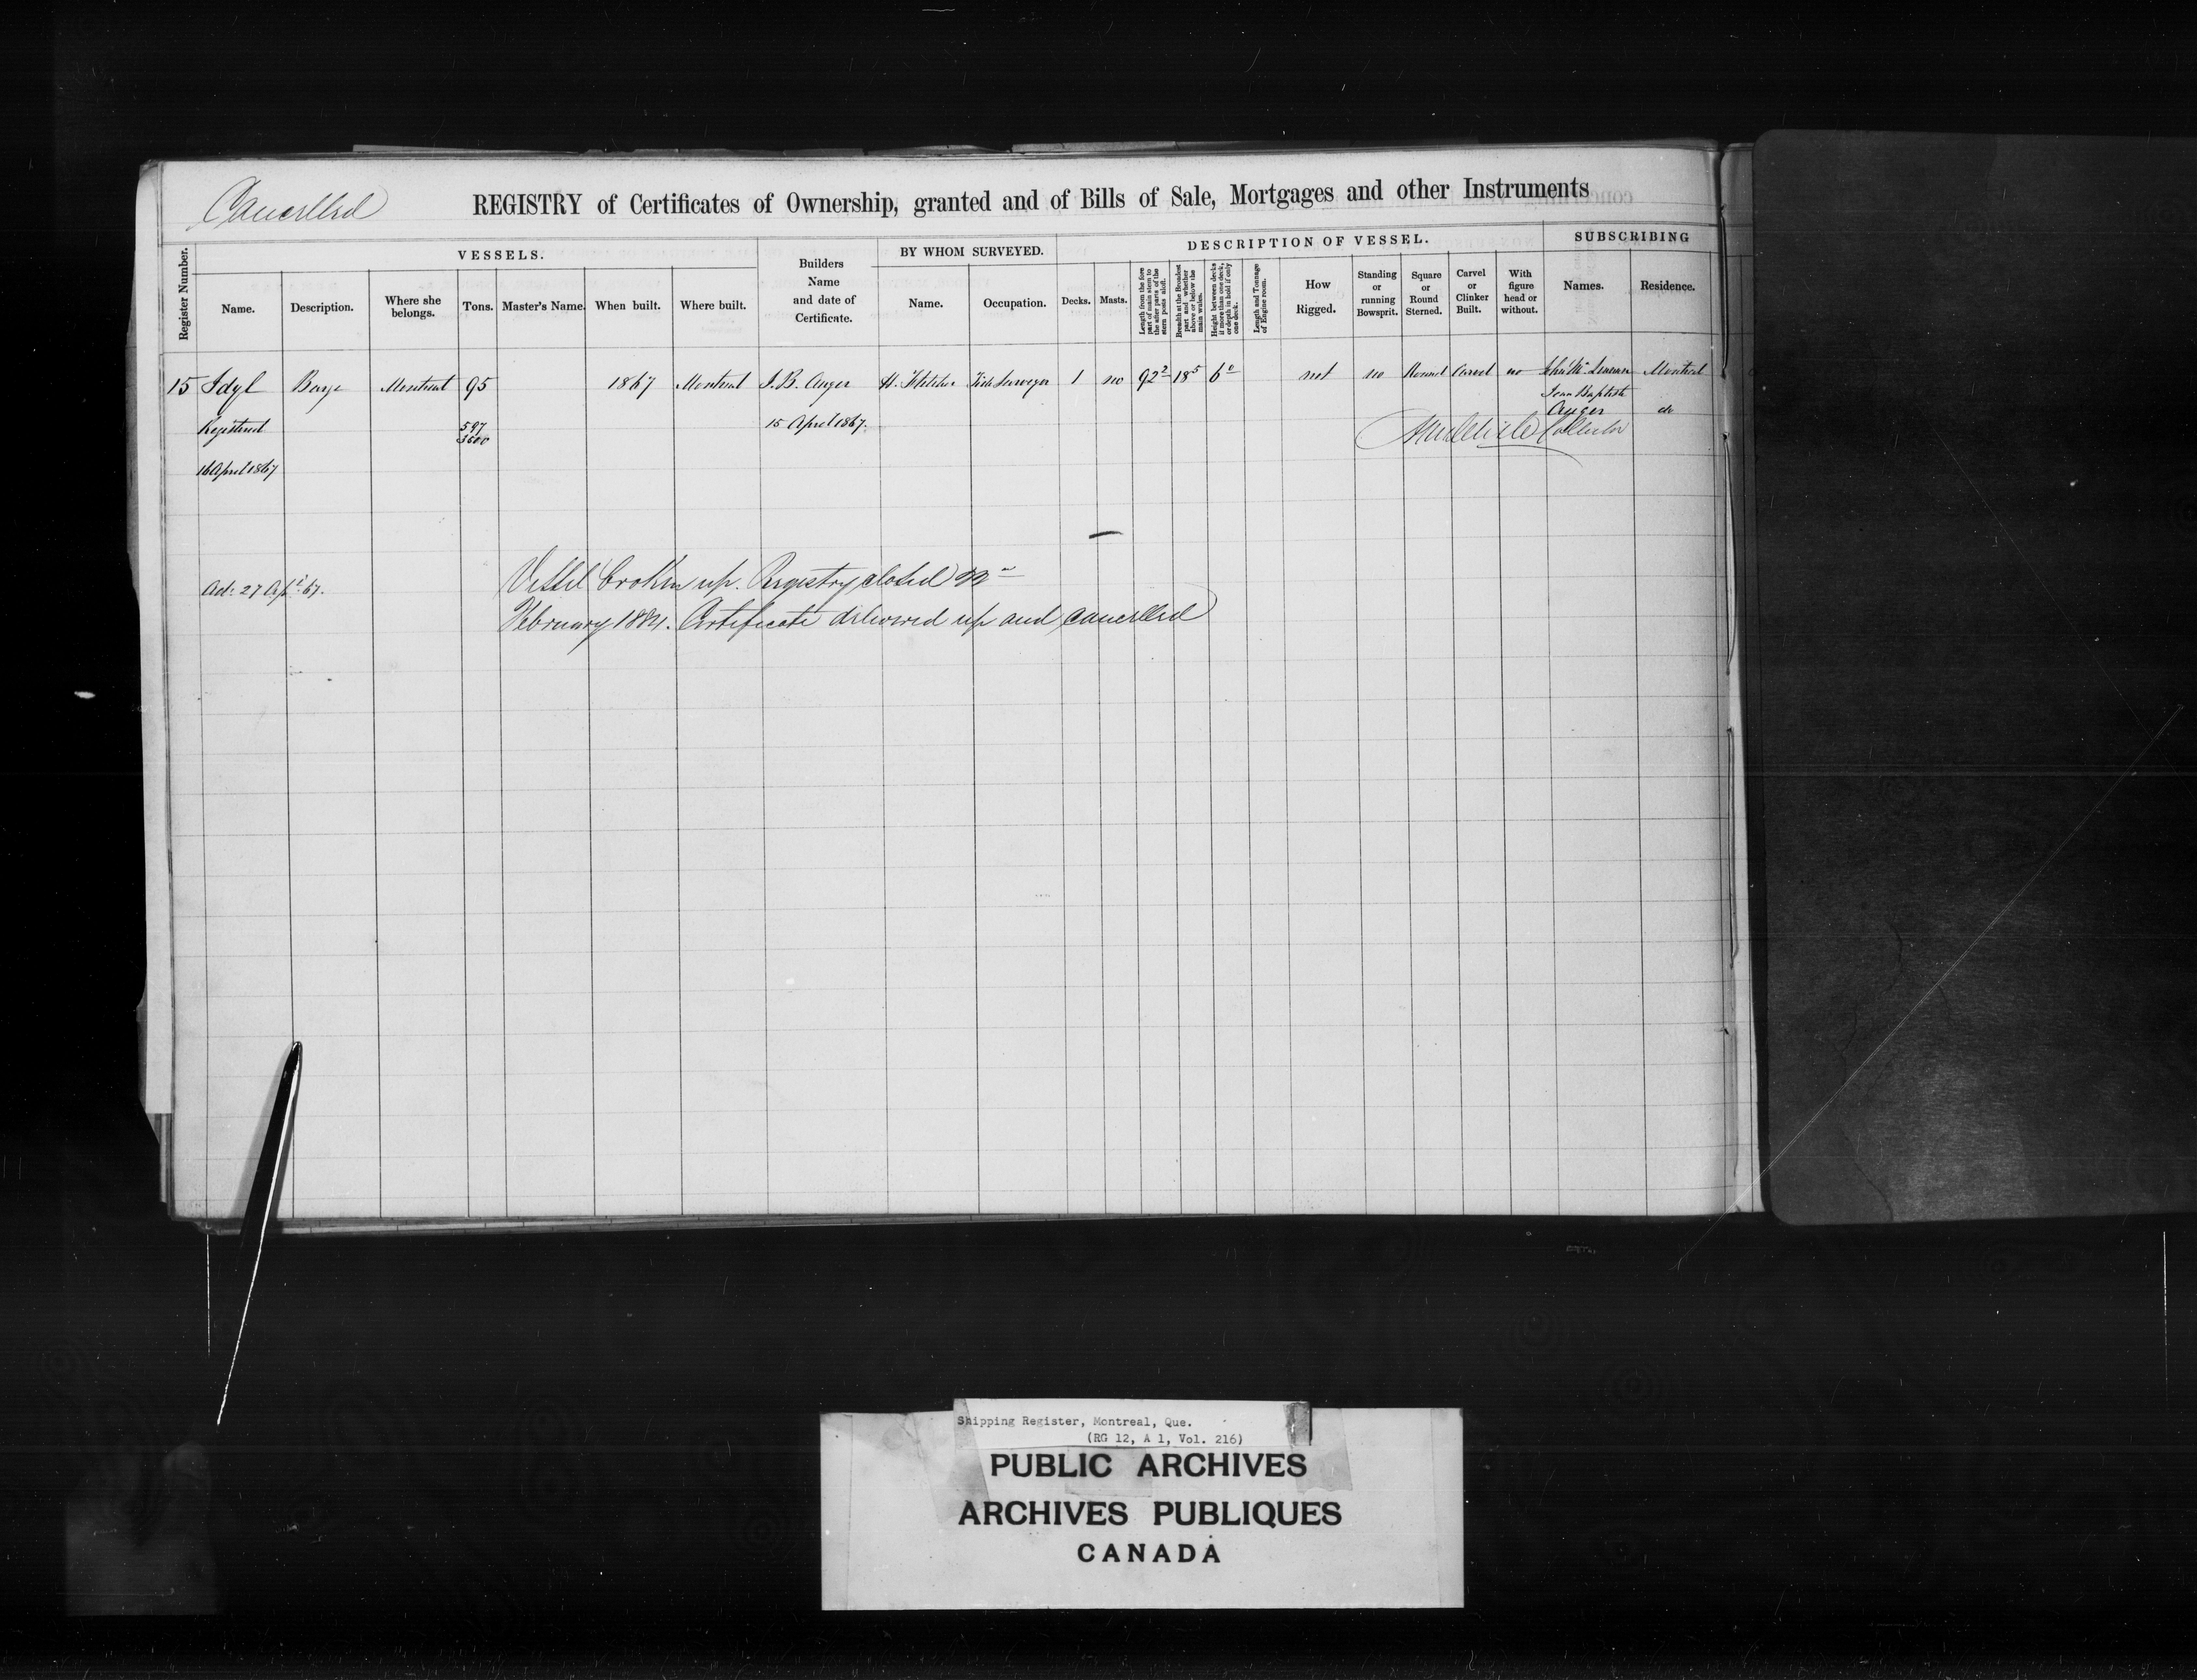 Cancelled
REGISTRY of Certificates of Ownership, granted and of Bills of Sale, Mortgages and other Instruments
Register Number.
VESSELS.
Builders Name and date of Certificate.
BY WHOM SURVEYED.
DESCRIPTION OF VESSEL.
SUBSCRIBING
Name. Description. Where she belongs. Tons. Master's Name. When built. Where built. Name. Occupation. Decks. Masts.
Length from the fore part of main stem to the after parts of the stern posts aloft.
Breadth at the Broadest part and whether above or below the main wales.
Height between decks if more than one deck, or depth in hold if only one deck.
Length and Tonnage of Engine room.
How Rigged. Standing or running Bowsprit. Square or Round Sterned. Carvel or Clinker Built. With figure head or without. Names. Residence.
15 Idyl Barge Montreal 95 1867 Montreal J. B. Auger H. Tide Surveyor 1 no 92 2 18 5 6 0 not no Round Carvel no Montreal
Jean Baptiste
Auger do
Registered 597 15 April 1867. Collector
3600
16 April 1867
Vessel broken up. Registry closed 22
Ad: 27 Apl 67.
February 1884. Certificate delivered up and cancelled
Shipping Register, Montreal, Que.
(RG 12, A 1, Vol. 216)
PUBLIC ARCHIVES
ARCHIVES PUBLIQUES
CANADA